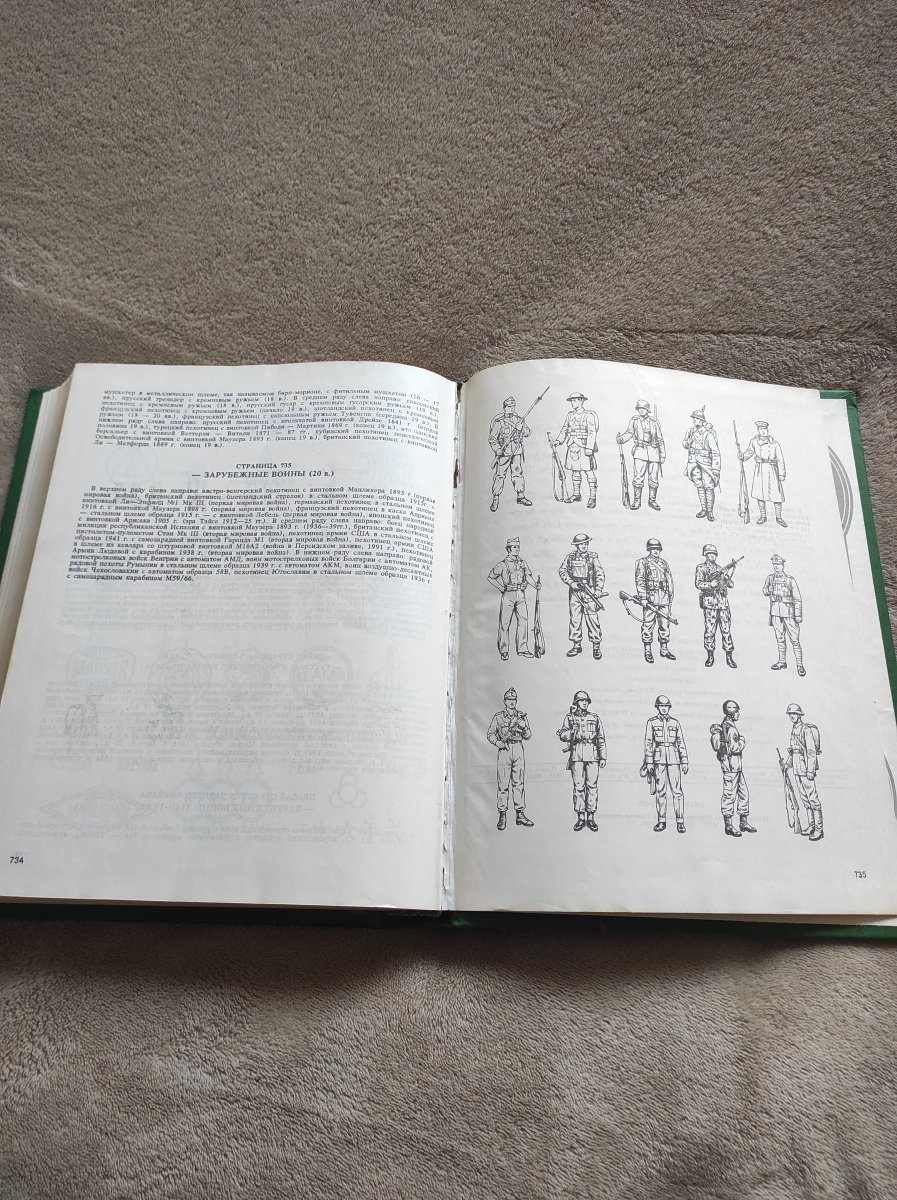 мушкетер в металлическом шлеме, так называемом бирг-морионе, с фитильным мушкетом (16 — 17
вв.), прусский гренадер с кремневым ружьем (18 в.). В среднем ряду слева направо: шведский
пехотинец с кремневым ружьем (18 в.), прусский гусар с кремневым гусарским ружьем (18 в.),
французский пехотинец с кремневым ружьем (начало 19 в.), шотландский пехотинец с кремневым
ружьем (18 — 20 вв.), французский пехотинец с капсюльным ружьем Тувенена (середина 19 в.). В
нижнем ряду слева направо: прусский пехотинец с игольчатой винтовкой Дрейзе 1841 г. (вторая
половина 19 в.), турецкий пехотинец с винтовкой Пибоди — Мартини 1869 г. (конец 19 в.), итальянский
берсальер с винтовкой Веттерли — Витали 1871 — 87 гг., кубинский пехотинец повстанческой
Освободительной армии с винтовкой Маузера 1893 г. (конец 19 в.), британский пехотинец с винтовкой
Ли — Метфорда 1889 г. (конец 19 в.)
СТРАНИЦА 735
— ЗАРУБЕЖНЫЕ ВОИНЫ (20 в.)
В верхнем ряду слева направо: австро-венгерский пехотинец с винтовкой Манлихера 1895 г. (первая
мировая война), британский пехотинец (шотландский стрелок) в стальном шлеме образца 1915 г. с
винтовкой Ли—Энфилд №1 Мк III (первая мировая война), германский пехотинец в стальном шлеме
1916 г. с винтовкой Маузера 1898 г. (первая мировая война), французский пехотинец в каске Адриана
— стальном шлеме образца 1915 г. — с винтовкой Лебель (первая мировая война), японский пехотинец
с винтовкой Арисака 1905 г. (эра Тайсе 1912—25 гг.). В среднем ряду слева направо: боец народной
милиции республиканской Испании с винтовкой Маузера 1893 г. (1936—39гг.), британский пехотинец с
пистолетом-пулеметом Стэн Мк III (вторая мировая война), пехотинец армии США в стальном шлеме
образца 1941 г. с самозарядной винтовкой Гаранда М1 (вторая мировая война), пехотинец армии США
в шлеме из кевлара со штурмовой винтовкой М16А2 (война в Персидском заливе, 1991 г.), пехотинец
Армии Людовой с карабином 1938 г. (вторая мировая война). В нижнем ряду слева направо: рядовой
мотострелковых войск Венгрии с автоматом АМД, воин мотострелковых войск Болгарии с автоматом АК,
рядовой пехоты Румынии в стальном шлеме образца 1939 г. с автоматом АКМ, воин воздушно-десантных
войск Чехословакии с автоматом образца 58В, пехотинец Югославии в стальном шлеме образца 1936 г.
с самозарядным карабином М59/66.
734
735